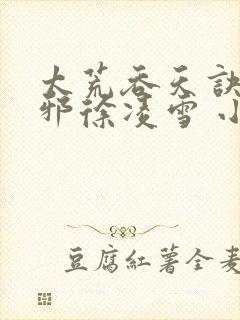 大荒吞天诀
邪徐凌雪 小
豆腐红薯全麦